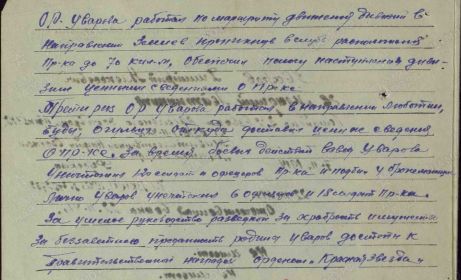 О.Р. Уварова работал по маршруту движения дивизий в
направлении Змиев проникнув в глубь расположения
Пр-ка до 70 килм, обеспечил полосу наступления диви-
зии ценными сведениями о Пр-ке.
Третий раз О.Р Уварова работал в направлении Люботин,
Буды, откуда доставил ценные сведения
о пр-ке. За время боевых действий взвод Уварова
уничтожил солдат и офицеров Пр-ка и подбил бронемашин
Лично Уваров уничтожил 6 офицеров и 18 солдат Пр-ка.
За умелое руководство разведкой за храбрость и мужество
За беззаветную преданность родине Уваров достоин к
правительственной награде орденом „Красная Звезда"